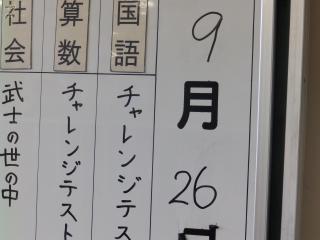 9月26日
国語
チャレンジテス
算数
チャレンジテスト
社会
武士の世の中